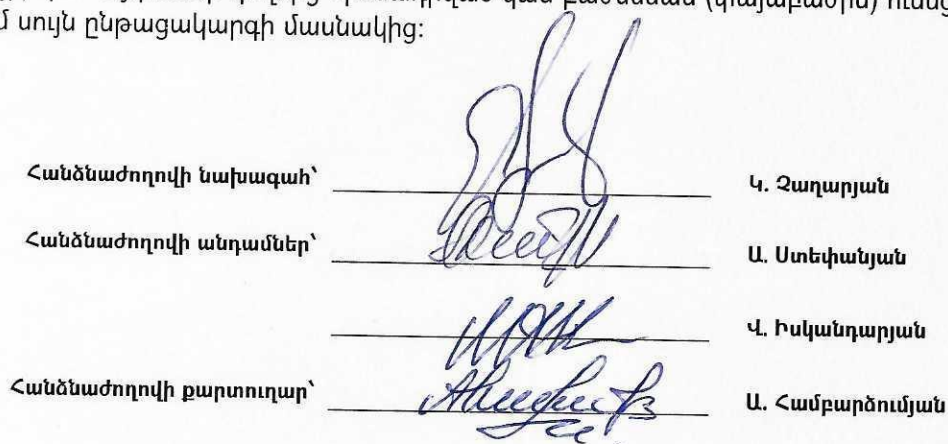 (փայաբաժին)
մ սույն ընթացակարգի մասնակից:
Հանձնաժողովի նախագահ՝ Կ. Չաղարյան
Հանձնաժողովի անդամներ՝ Ա. Ստեփանյան
Վ. Իսկանդարյան
Հանձնաժողովի քարտուղար՝ Ա. Համբարձումյան